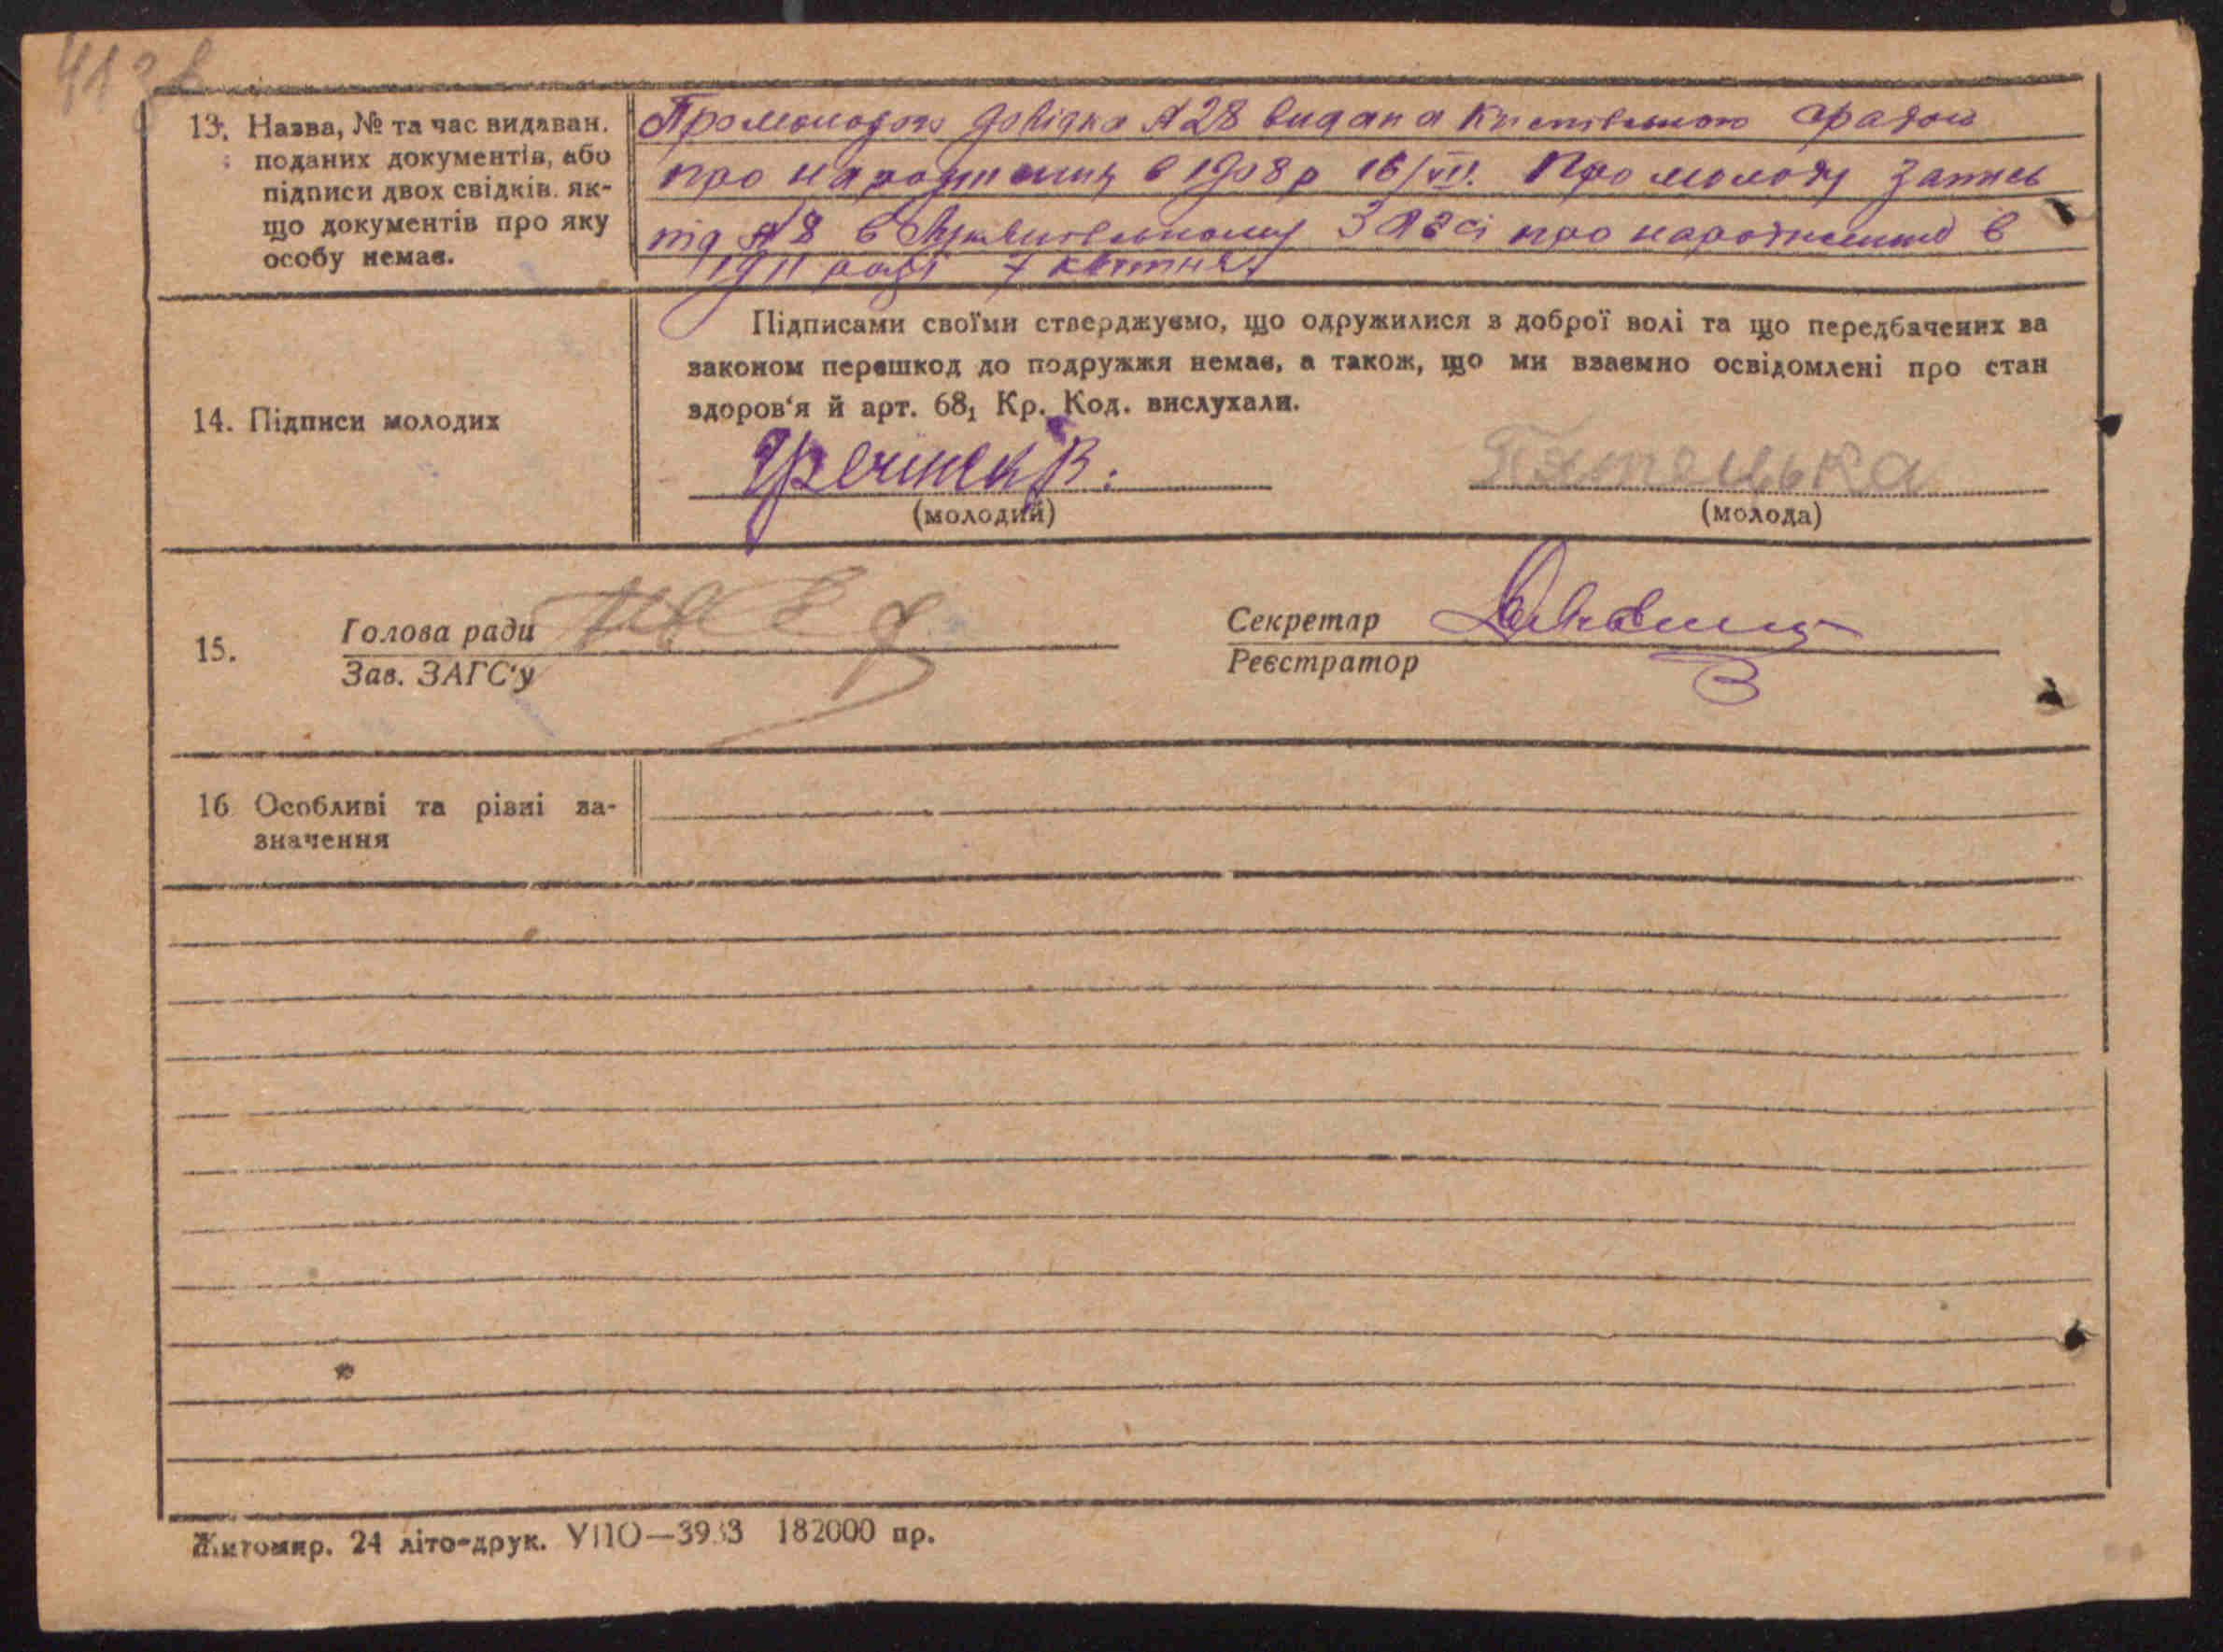 41 зв
13. Назва, № та час видаван.
поданих документів, або
підписи двох свідків. як-
що документів про яку
особу немає.
Про молодого довідка №28 видана радою
про народження в 1908 р 16/VII. Про молоду запись
під №8 в Загсі про народження в
1911 році 7 квітня
Підписами своїми стверджуємо, що одружилися з доброї волі та що передбачених за
законом перешкод до подружжя немає, а також, що ми взаємно освідомлені про стан
здоров'я й арт. 68₁ Кр. Код. вислухали.
14. Підписи молодих
(молодий) (молода)
15. Голова ради Секретар
Зав. ЗАГС'у Реєстратор
16 Особливі та різні за-
значення
Житомир. 24 літо-друк. УПО—3933 182000 пр.